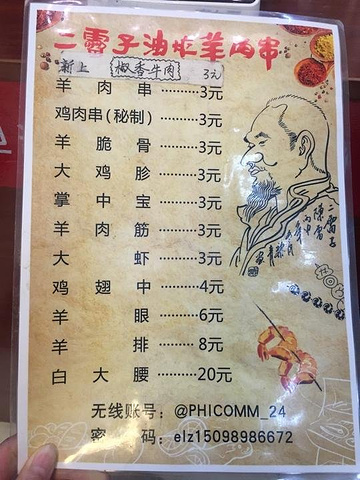 二霸子油炸羊肉串
新上 椒香牛肉 3元
羊肉串………3元
鸡肉串(秘制)………3元
羊脆骨………3元
大鸡胗………3元
掌中宝………3元
羊肉筋………3元
大虾………3元
鸡翅中………4元
羊眼………6元
羊排………8元
白大腰………20元
无线账号：@PHICOMM_24
密码：elz15098986672